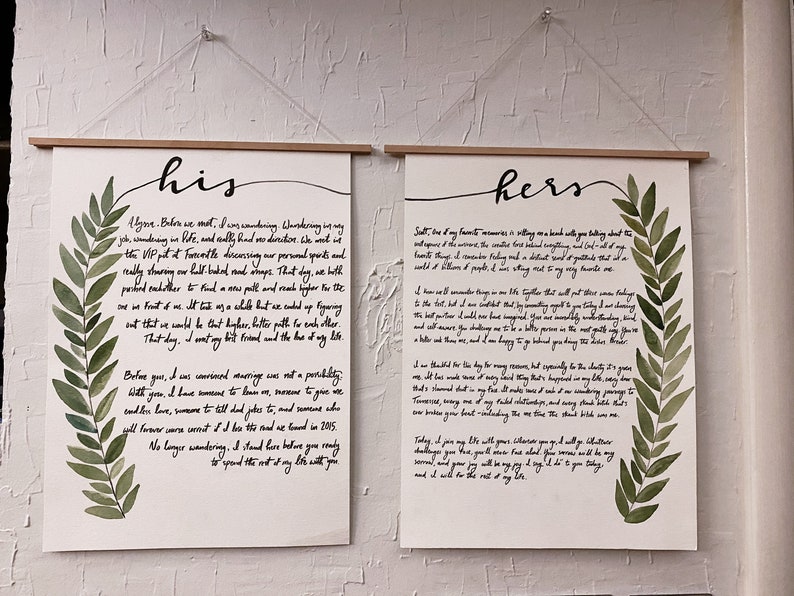 his
Alyssa. Before we met, I was wandering. Wandering in my
job, wandering in life, and really had no direction. We met in
the VIP pit at Forecastle discussing our personal spirits and
really sharing our half-baked road maps. That day, we both
pushed eachother to find a new path and reach higher for the
one in front of us. It took us a while but we ended up figuring
out that we would be that higher, better path for each other.
That day, I met my best friend and the love of my life.
Before you, I was convinced marriage was not a possibility.
With you, I have someone to lean on, someone to give me
endless love, someone to tell dad jokes to, and someone who
will forever course correct if I lose the road we found in 2015.
No longer wandering, I stand here before you ready
to spend the rest of my life with you.
hers
Scott, One of my favorite memories is sitting on a beach with you talking about the
vast expanse of the universe, the creative force behind everything, and God - all of my
favorite things. I remember feeling such a distinct sense of gratitude that in a
world of billions of people, I was sitting next to my very favorite one.
I know we'll encounter things in our life together that will put those warm feelings
to the test, but I am confident that, by committing myself to you today I am choosing
the best partner I could ever have imagined. You are incredibly understanding, kind
and self-aware. You challenge me to be a better person in the most gentle way. You're
a better cook than me, and I am happy to go behind you doing the dishes forever.
I am thankful for this day for many reasons, but especially for the clarity it's given
me. It has made sense of every weird thing that's happened in my life, every door
that's slammed shut in my face. It makes sense of each of our wandering journeys to
Tennessee, every one of my failed relationships, and every skank bitch that's
ever broken your heart - including the one time the skank bitch was me.
Today, I join my life with yours. Wherever you go, I will go. Whatever
challenges you face, you'll never face alone. Your sorrow will be my
sorrow, and your joy will be my joy. I say "I do" to you today,
and I will for the rest of my life.